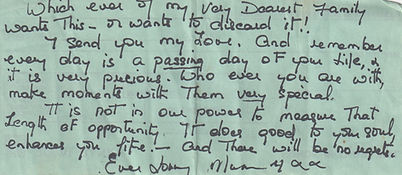 Which ever of my Very Dearest Family
wants This - or wants to discard it!!
I send you my Love. And remember
every day is a passing day of your Life, &
it is very precious. Who ever you are with,
make moments with Them very special.
IT is not in our power to measure That
Length of opportunity. IT does good to your soul,
enhances your Life! - And There will be no regrets.
Ever Loving Mum